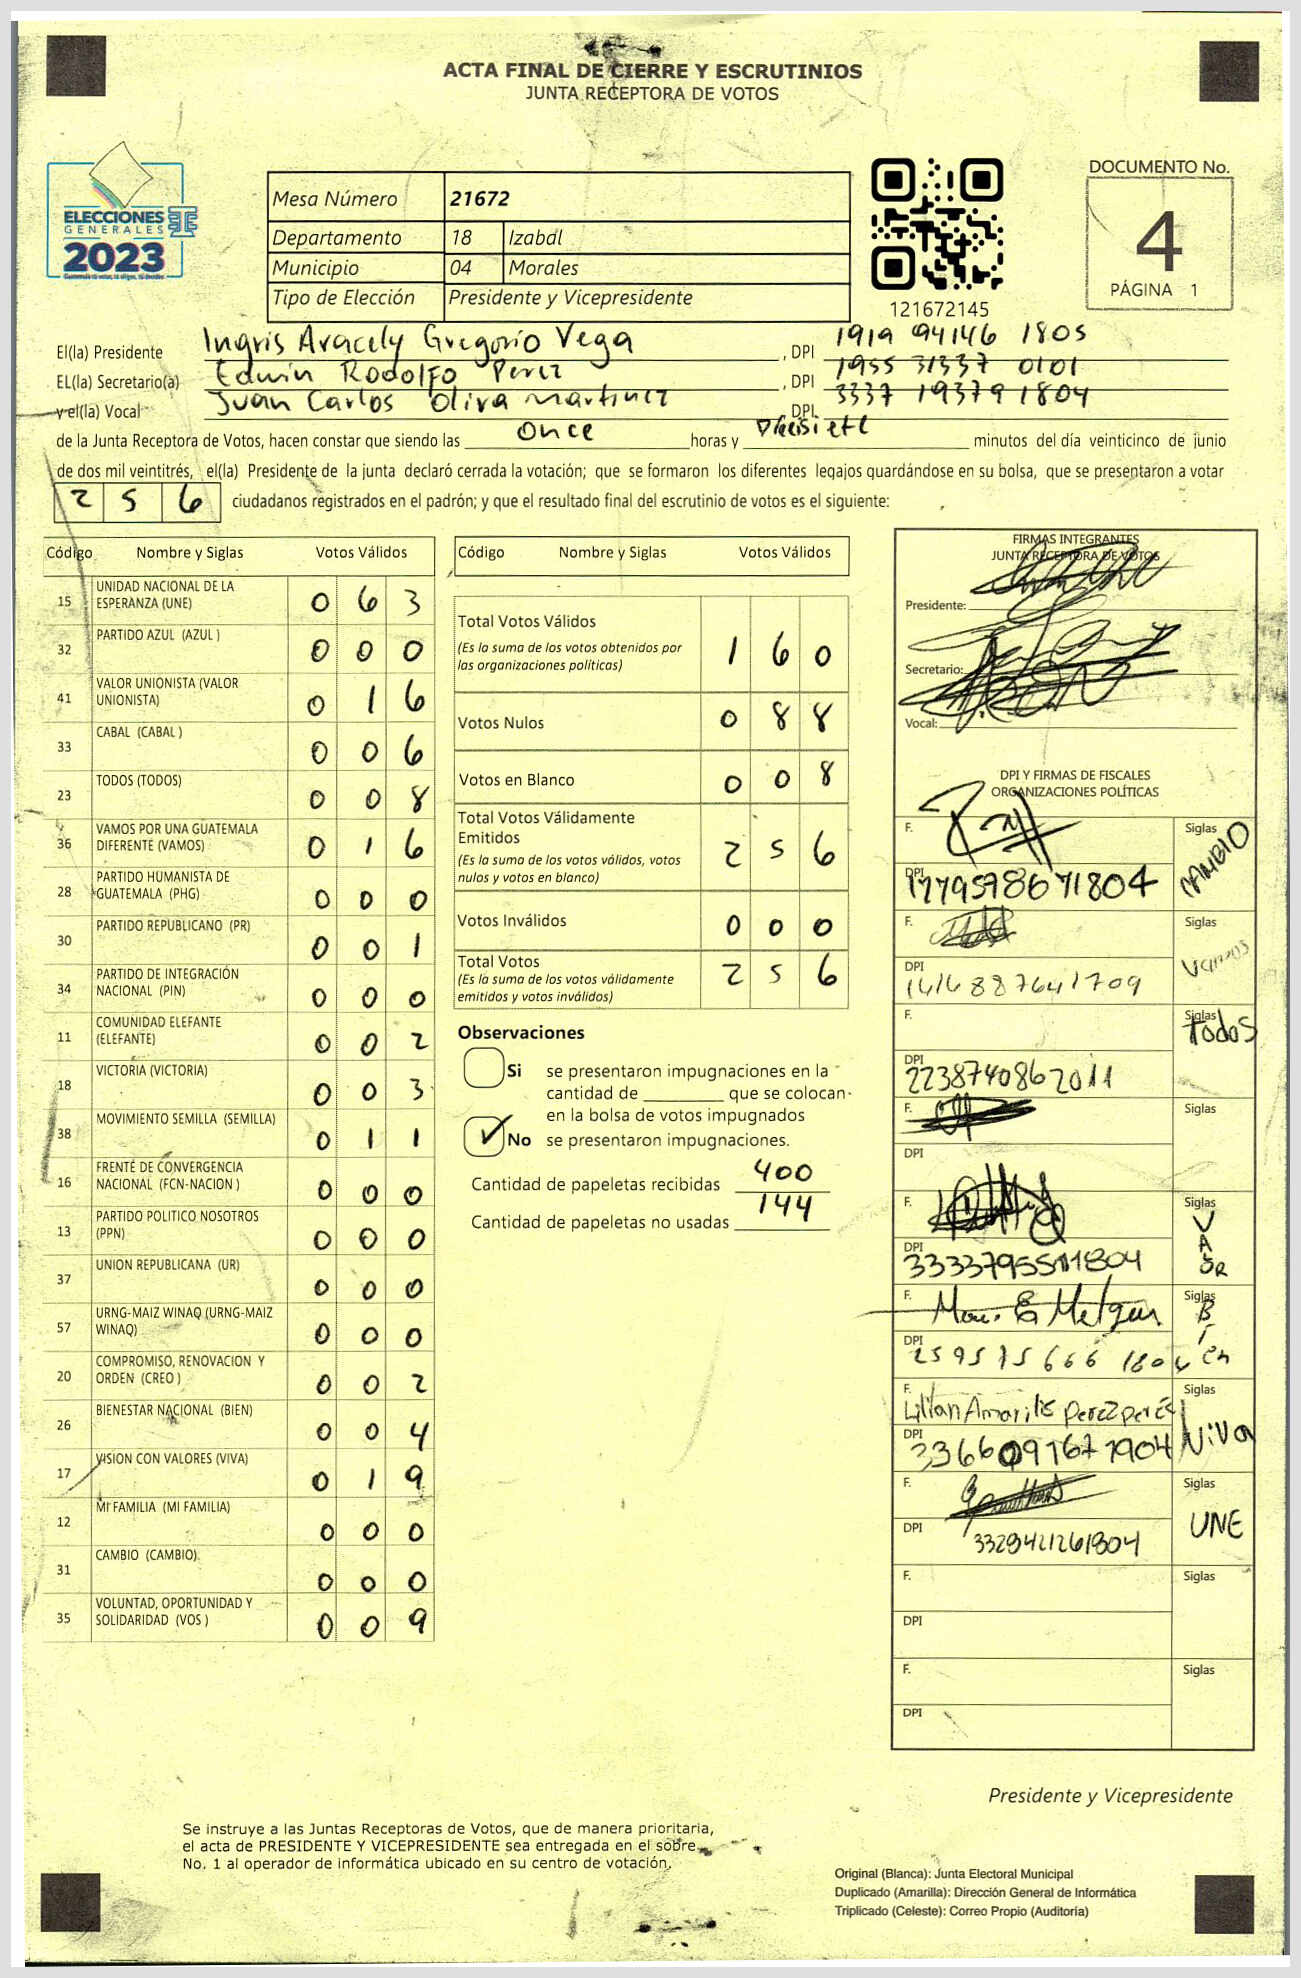 ACTA FINAL DE CIERRE Y ESCRUTINIOS
JUNTA RECEPTORA DE VOTOS
ELECCIONES
GENERALES
2023
Mesa Número 21672
Departamento 18 Izabal
Municipio 04 Morales
Tipo de Elección Presidente y Vicepresidente
121672145
DOCUMENTO No.
4
PÁGINA 1
El(la) Presidente Ingris Aracely Gregorio Vega , DPI 1919 94146 1805
EL(la) Secretario(a) Edwin Rodolfo Perez , DPI 1955 31337 0101
y el(la) Vocal Juan Carlos Oliva Martinez DPI. 3337 19379 1804
de la Junta Receptora de Votos, hacen constar que siendo las once horas y Diecisiete minutos del día veinticinco de junio
de dos mil veintitrés, el(la) Presidente de la junta declaró cerrada la votación; que se formaron los diferentes legajos guardándose en su bolsa, que se presentaron a votar
256 ciudadanos registrados en el padrón; y que el resultado final del escrutinio de votos es el siguiente:
Código Nombre y Siglas Votos Válidos
15 UNIDAD NACIONAL DE LA ESPERANZA (UNE) 0 6 3
32 PARTIDO AZUL (AZUL ) 0 0 0
41 VALOR UNIONISTA (VALOR UNIONISTA) 0 1 6
33 CABAL (CABAL ) 0 0 6
23 TODOS (TODOS) 0 0 8
36 VAMOS POR UNA GUATEMALA DIFERENTE (VAMOS) 0 1 6
28 PARTIDO HUMANISTA DE GUATEMALA (PHG) 0 0 0
30 PARTIDO REPUBLICANO (PR) 0 0 1
34 PARTIDO DE INTEGRACIÓN NACIONAL (PIN) 0 0 0
11 COMUNIDAD ELEFANTE (ELEFANTE) 0 0 2
18 VICTORIA (VICTORIA) 0 0 3
38 MOVIMIENTO SEMILLA (SEMILLA) 0 1 1
16 FRENTE DE CONVERGENCIA NACIONAL (FCN-NACION ) 0 0 0
13 PARTIDO POLITICO NOSOTROS (PPN) 0 0 0
37 UNION REPUBLICANA (UR) 0 0 0
57 URNG-MAIZ WINAQ (URNG-MAIZ WINAQ) 0 0 0
20 COMPROMISO, RENOVACION Y ORDEN (CREO ) 0 0 2
26 BIENESTAR NACIONAL (BIEN) 0 0 4
17 VISION CON VALORES (VIVA) 0 1 9
12 MI FAMILIA (MI FAMILIA) 0 0 0
31 CAMBIO (CAMBIO). 0 0 0
35 VOLUNTAD, OPORTUNIDAD Y SOLIDARIDAD (VOS ) 0 0 9
Código Nombre y Siglas Votos Válidos
Total Votos Válidos 1 6 0
(Es la suma de los votos obtenidos por
las organizaciones políticas)
Votos Nulos 0 8 8
Votos en Blanco 0 0 8
Total Votos Válidamente
Emitidos 2 5 6
(Es la suma de los votos válidos, votos
nulos y votos en blanco)
Votos Inválidos 0 0 0
Total Votos 2 5 6
(Es la suma de los votos válidamente
emitidos y votos inválidos)
Observaciones
Si se presentaron impugnaciones en la
cantidad de ________ que se colocan
en la bolsa de votos impugnados
No se presentaron impugnaciones.
Cantidad de papeletas recibidas 400
Cantidad de papeletas no usadas 144
FIRMAS INTEGRANTES
JUNTA RECEPTORA DE VOTOS
Presidente:
Secretario:
Vocal:
DPI Y FIRMAS DE FISCALES
ORGANIZACIONES POLÍTICAS
F. Siglas CAMBIO
DPI 1779578671804
F. Siglas Vamos
DPI 1416887641709
F. Siglas Todos
DPI 2238740862011
F. Siglas
DPI
F. Siglas
DPI
F. Siglas
DPI
F. Lilian Amarilis Perez Perez Siglas Viva
DPI 3366091671904
F. Siglas UNE
DPI 3329421261804
F. Siglas
DPI
F. Siglas
DPI
Presidente y Vicepresidente
Se instruye a las Juntas Receptoras de Votos, que de manera prioritaria,
el acta de PRESIDENTE Y VICEPRESIDENTE sea entregada en el sobre
No. 1 al operador de informática ubicado en su centro de votación.
Original (Blanca): Junta Electoral Municipal
Duplicado (Amarilla): Dirección General de Informática
Triplicado (Celeste): Correo Propio (Auditoría)